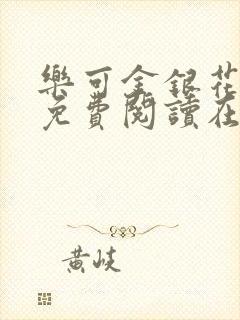 樂可金銀花
免費閱讀在
黃岐